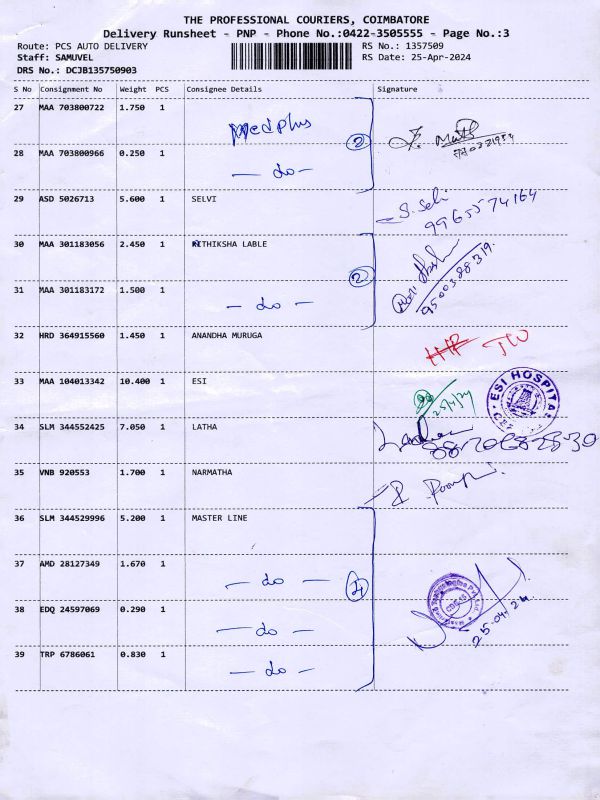 THE PROFESSIONAL COURIERS, COIMBATORE
Delivery Runsheet - PNP - Phone No.:0422-3505555 - Page No.:3
Route: PCS AUTO DELIVERY RS No.: 1357509
Staff: SAMUVEL RS Date: 25-Apr-2024
DRS No.: DCJB135750903
S No Consignment No Weight PCS Consignee Details Signature
27 MAA 703800722 1.750 1 medplus
2
28 MAA 703800966 0.250 1 — do —
29 ASD 5026713 5.600 1 SELVI S. Selvi
9965574164
30 MAA 301183056 2.450 1 RITHIKSHA LABLE
2 9500388319
31 MAA 301183172 1.500 1 — do —
32 HRD 364915560 1.450 1 ANANDHA MURUGA
33 MAA 104013342 10.400 1 ESI 25/4/24 ESI HOSPITAL
34 SLM 344552425 7.050 1 LATHA
35 VNB 920553 1.700 1 NARMATHA
36 SLM 344529996 5.200 1 MASTER LINE
37 AMD 28127349 1.670 1 — do — 4
38 EDQ 24597069 0.290 1 — do — 25.04.24
39 TRP 6786061 0.830 1 — do —